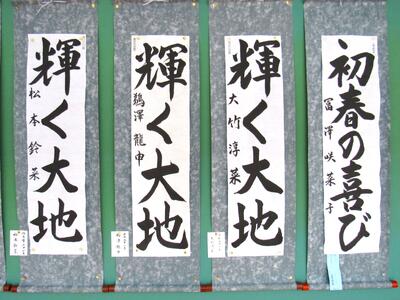 輝く大地
松本鈴菜
輝く大地
鵜澤龍申
輝く大地
大竹淳菜
初春の喜び
冨澤咲菜子